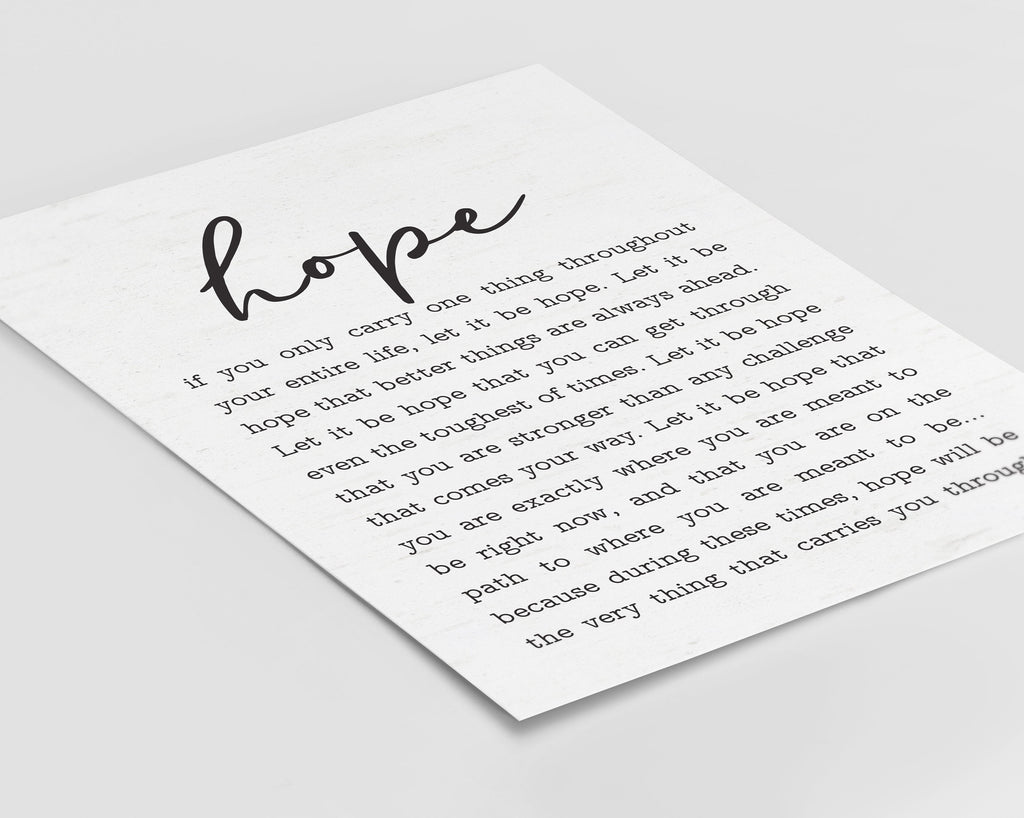 hope
if you only carry one thing throughout
your entire life, let it be hope. Let it be
hope that better things are always ahead.
Let it be hope that you can get through
even the toughest of times. Let it be hope
that you are stronger than any challenge
that comes your way. Let it be hope that
you are exactly where you are meant to
be right now, and that you are on the
path to where you are meant to be...
because during these times, hope will be
the very thing that carries you through